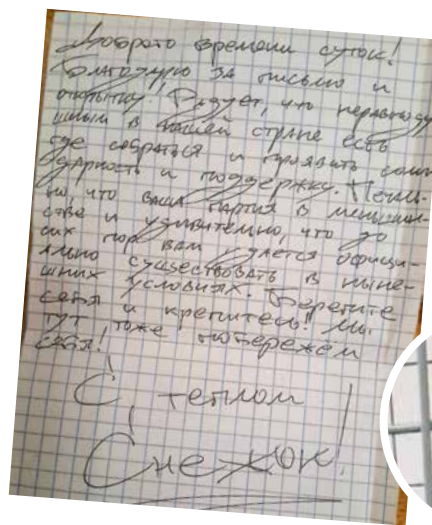 Доброго времени суток!
Благодарю за письмо и
открытку! Радует, что неравноду
шным в нашей стране есть
где собраться и проявить соли
дарность и поддержку. Печаль-
но, что ваша партия в меньшин-
стве и удивительно, что до
сих пор вам удается офици-
ально существовать в ныне-
шних условиях. Берегите
себя и крепитесь! Мы
тут тоже побережём
себя!
С теплом
Снежок!